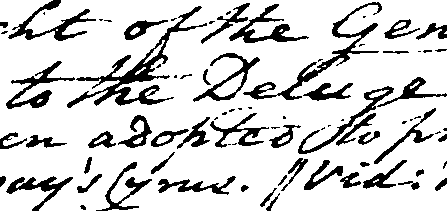 ght of the Gen
to the Deluge
en adopted to pr
say's Cyrus. // Vid: